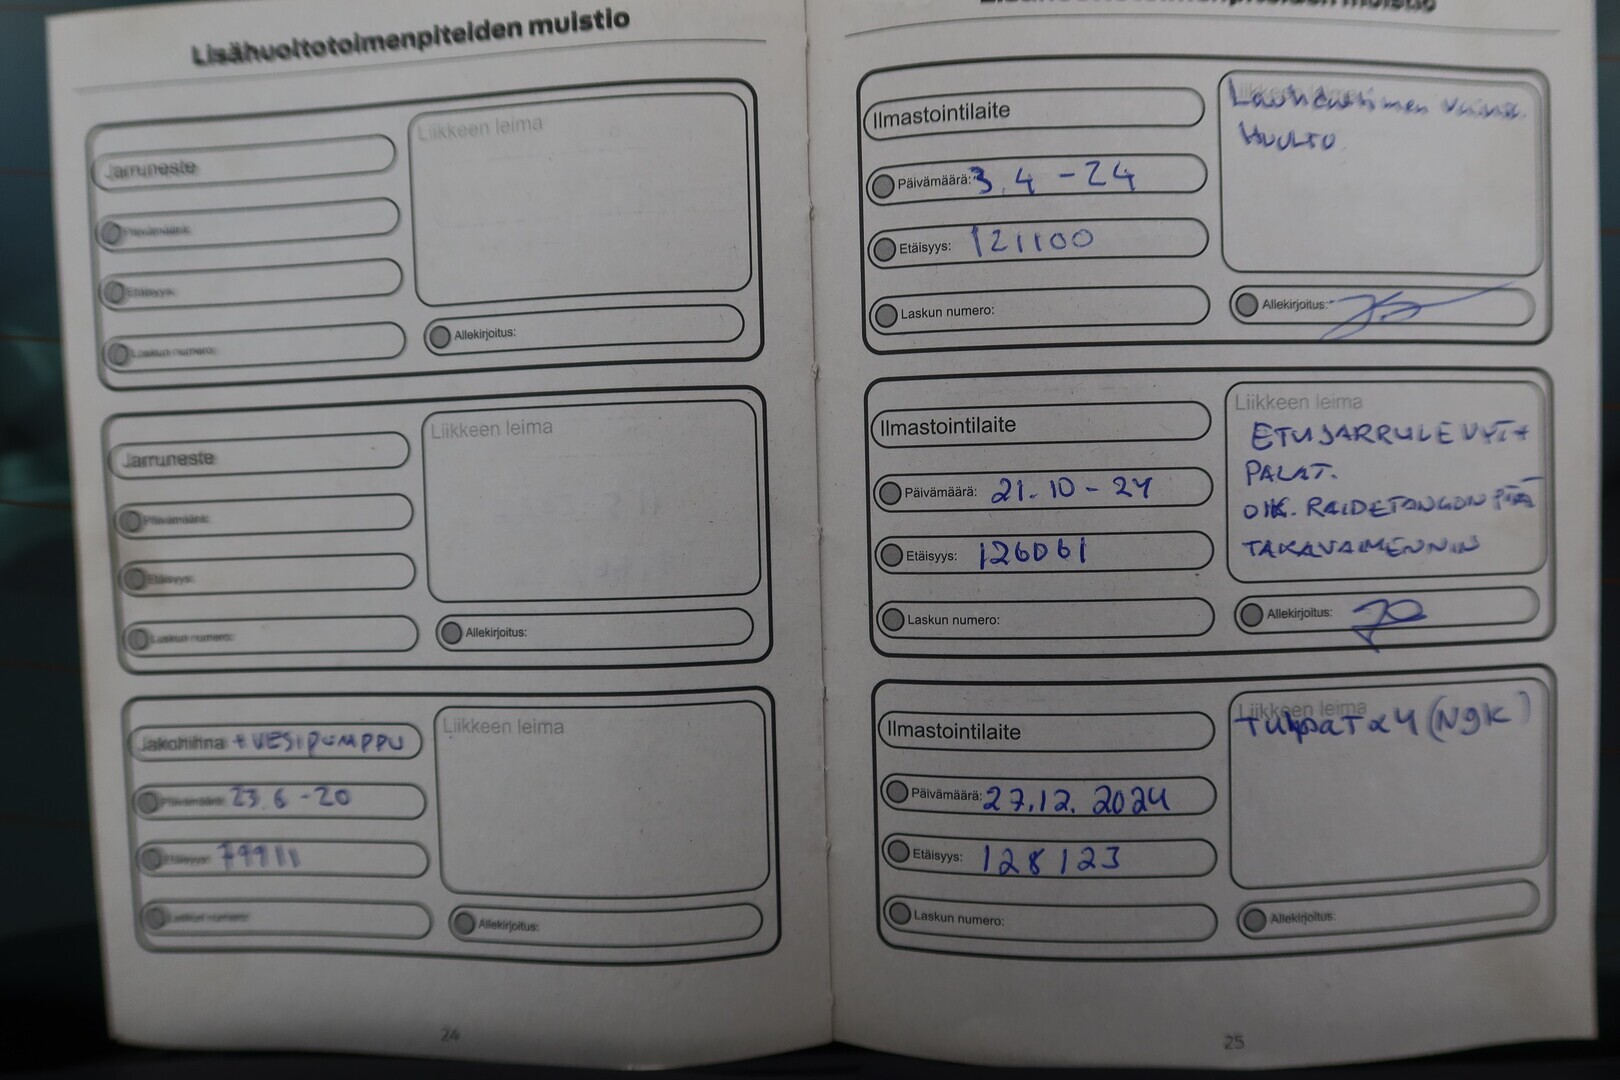 Lisähuoltotoimenpiteiden muistio
Jarruneste
Päivämäärä:
Etäisyys:
Laskun numero:
Liikkeen leima
Allekirjoitus:
Jarruneste
Päivämäärä:
Etäisyys:
Laskun numero:
Liikkeen leima
Allekirjoitus:
Jakohihna + VESIPUMPPU
Päivämäärä: 23.6 -20
Etäisyys: 79911
Laskun numero:
Liikkeen leima
Allekirjoitus:
24
Lisähuoltotoimenpiteiden muistio
Ilmastointilaite
Päivämäärä: 3.4 -24
Etäisyys: 121100
Laskun numero:
Liikkeen leima
HUOLTO
Allekirjoitus:
Ilmastointilaite
Päivämäärä: 21.10 - 24
Etäisyys: 126061
Laskun numero:
Liikkeen leima
ETUJARRULEVYT+
PALAT.
OIK. RAIDETANGON PÄÄ
TAKAVAIMENNIN
Allekirjoitus:
Ilmastointilaite
Päivämäärä: 27.12. 2024
Etäisyys: 128123
Laskun numero:
Liikkeen leima
TulpaT x 4 (NgK)
Allekirjoitus:
25